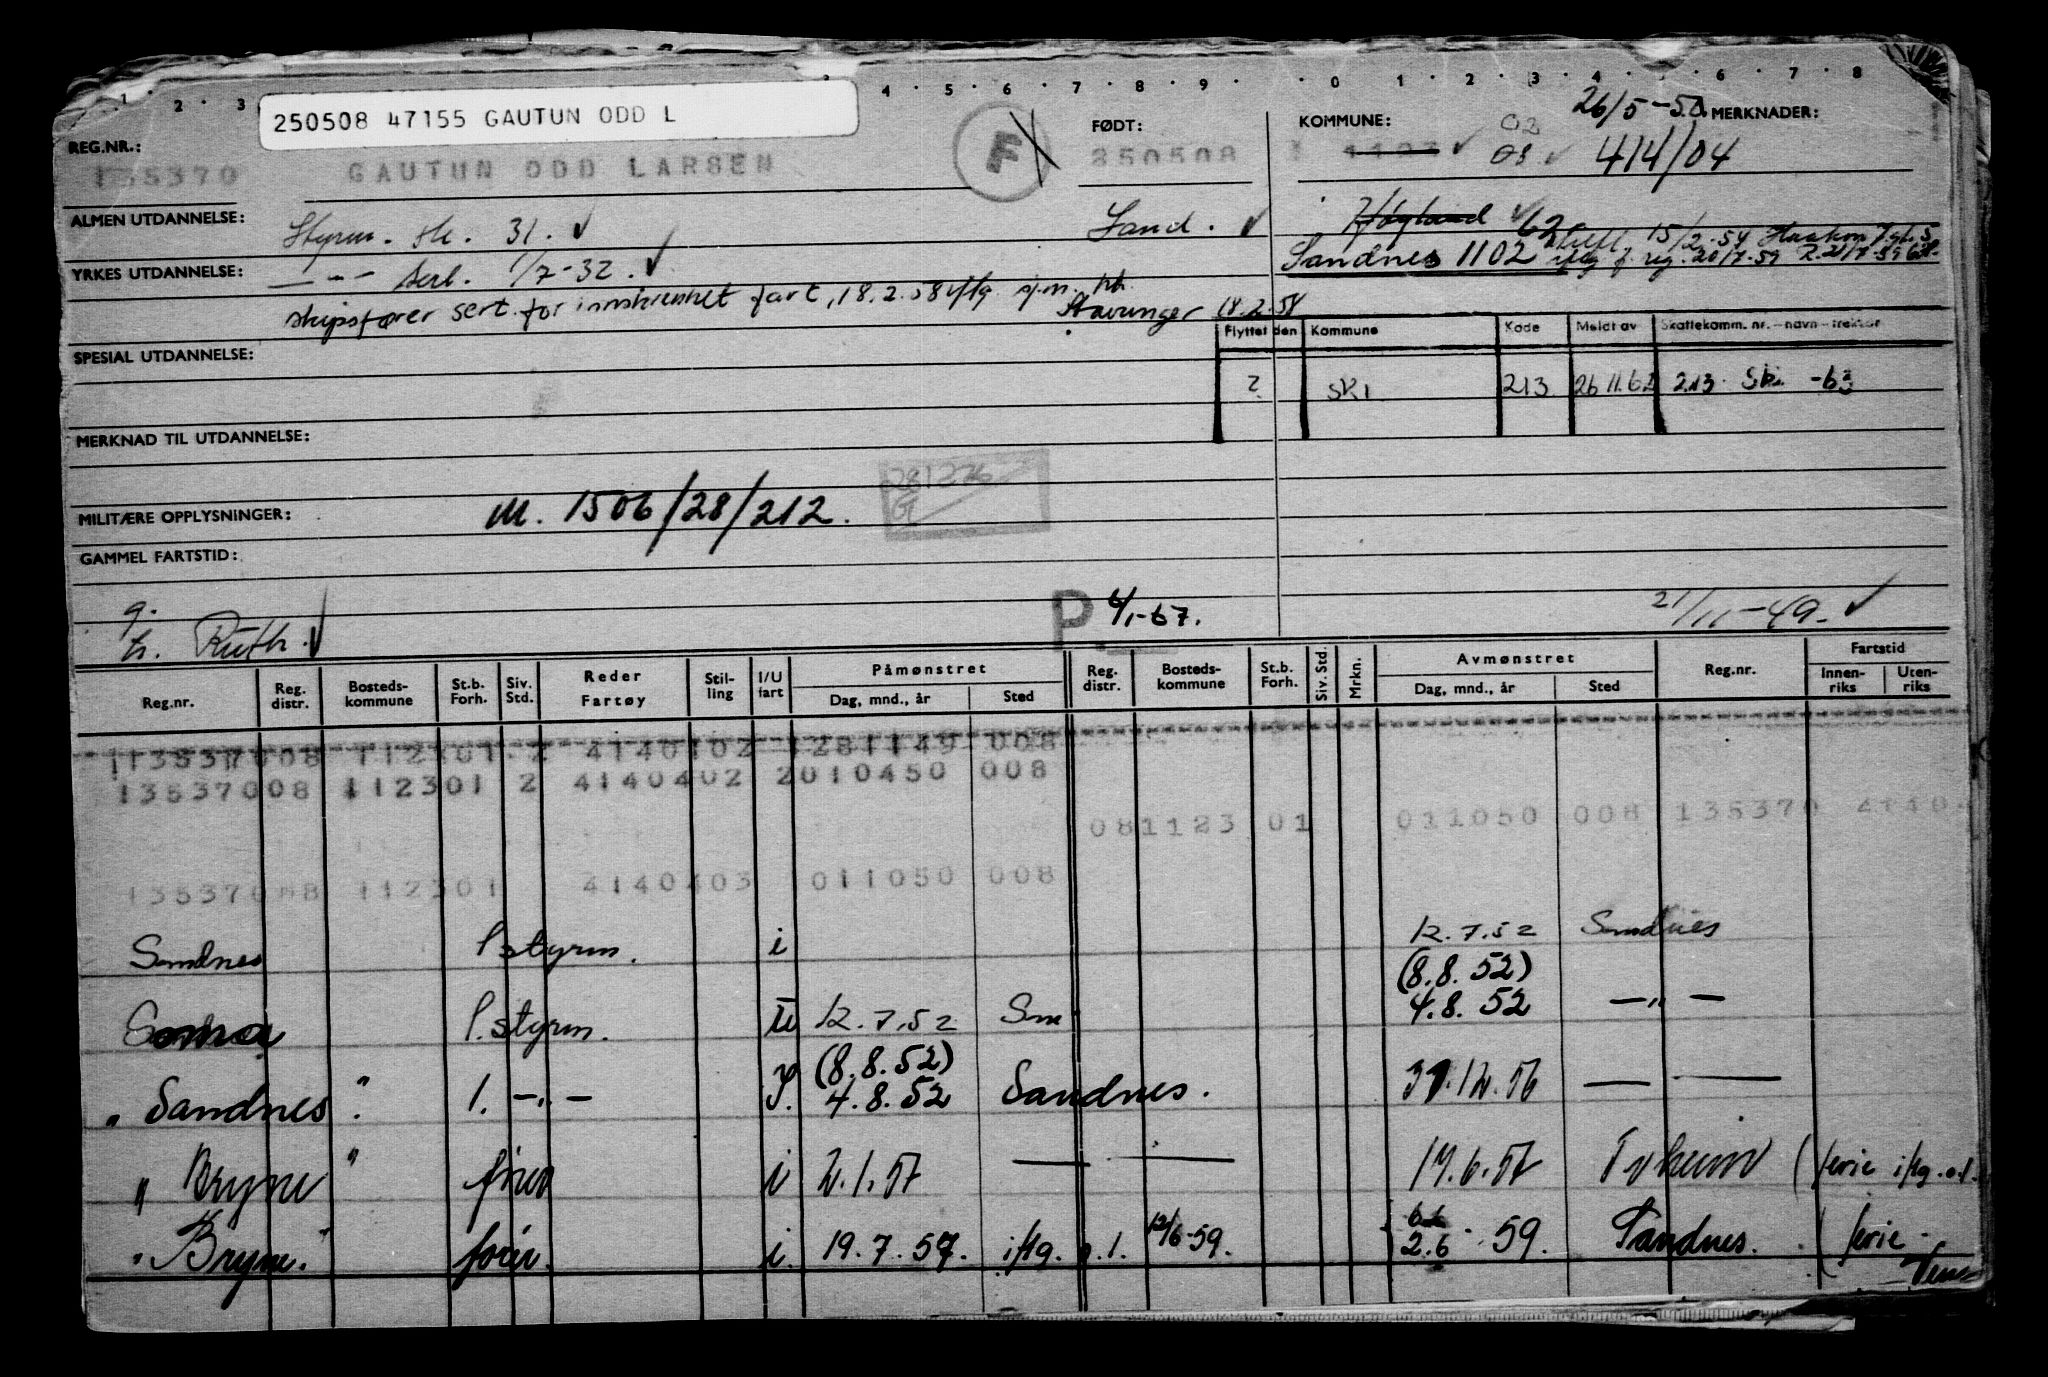 1 · 2 · 3 4 · 5 · 6 · 7 · 8 · 9 · · 0 · 1 · 2 · 3 · 4 · 5 · 6 · 7 · 8
250508 47155 GAUTUN ODD L
26/5-50. MERKNADER:
REG.NR.: F FØDT: KOMMUNE: 02
135370 GAUTUN ODD LARSEN 250508 08 414/04
ALMEN UTDANNELSE: Styrm. sk. 31. Sand. Høyland 62
15/2-54 Haakon 7 gt. 5
YRKES UTDANNELSE: — " — sert. 1/7-32. Sandnes 1102
skipsfører sert. for innskrenket fart, 18.2.58 Stavanger 18.2.58
Flyttet den Kommune Kode Meldt av Skattekomm. nr. – navn – trekkår
SPESIAL UTDANNELSE:
? SKI 213 26 11.62 213 Ski -63
MERKNAD TIL UTDANNELSE:
281226
G
MILITÆRE OPPLYSNINGER: M. 1506/28/212.
GAMMEL FARTSTID:
g. P 6/1-67. 21/11-49.
h. Ruth.
Reg.nr. Reg. distr. Bosteds-kommune St.b. Forh. Siv. Std. Reder Fartøy Stil-ling I/U fart Påmønstret Dag, mnd., år Sted Reg. distr. Bosteds-kommune St.b. Forh. Siv. Std. Mrkn. Avmønstret Dag, mnd., år Sted Reg.nr. Fartstid Innen-riks Uten-riks
13537008 112301 2 4140102 281149 008
13537008 112301 2 4140402 2010450 008
081123 01 011050 008 135370 4140
13537008 112301 4140403 011050 008
Sandnes 1 styrm. i 12.7.52 Sandnes
(8.8.52)
1. styrm. U 12.7.52 Sm 4.8.52 — " —
(8.8.52)
" Sandnes " 1. — " — I. 4.8.52 Sandnes. 31.12.56 — —
" Bryne " fører i 2.1.57 — — 17.6.57 (ferie iflg. o.l.
" Bryne. " fører. i. 19.7.57. iflg. o.l. 12/6-59. 2.6 - 59. Sandnes. (ferie -